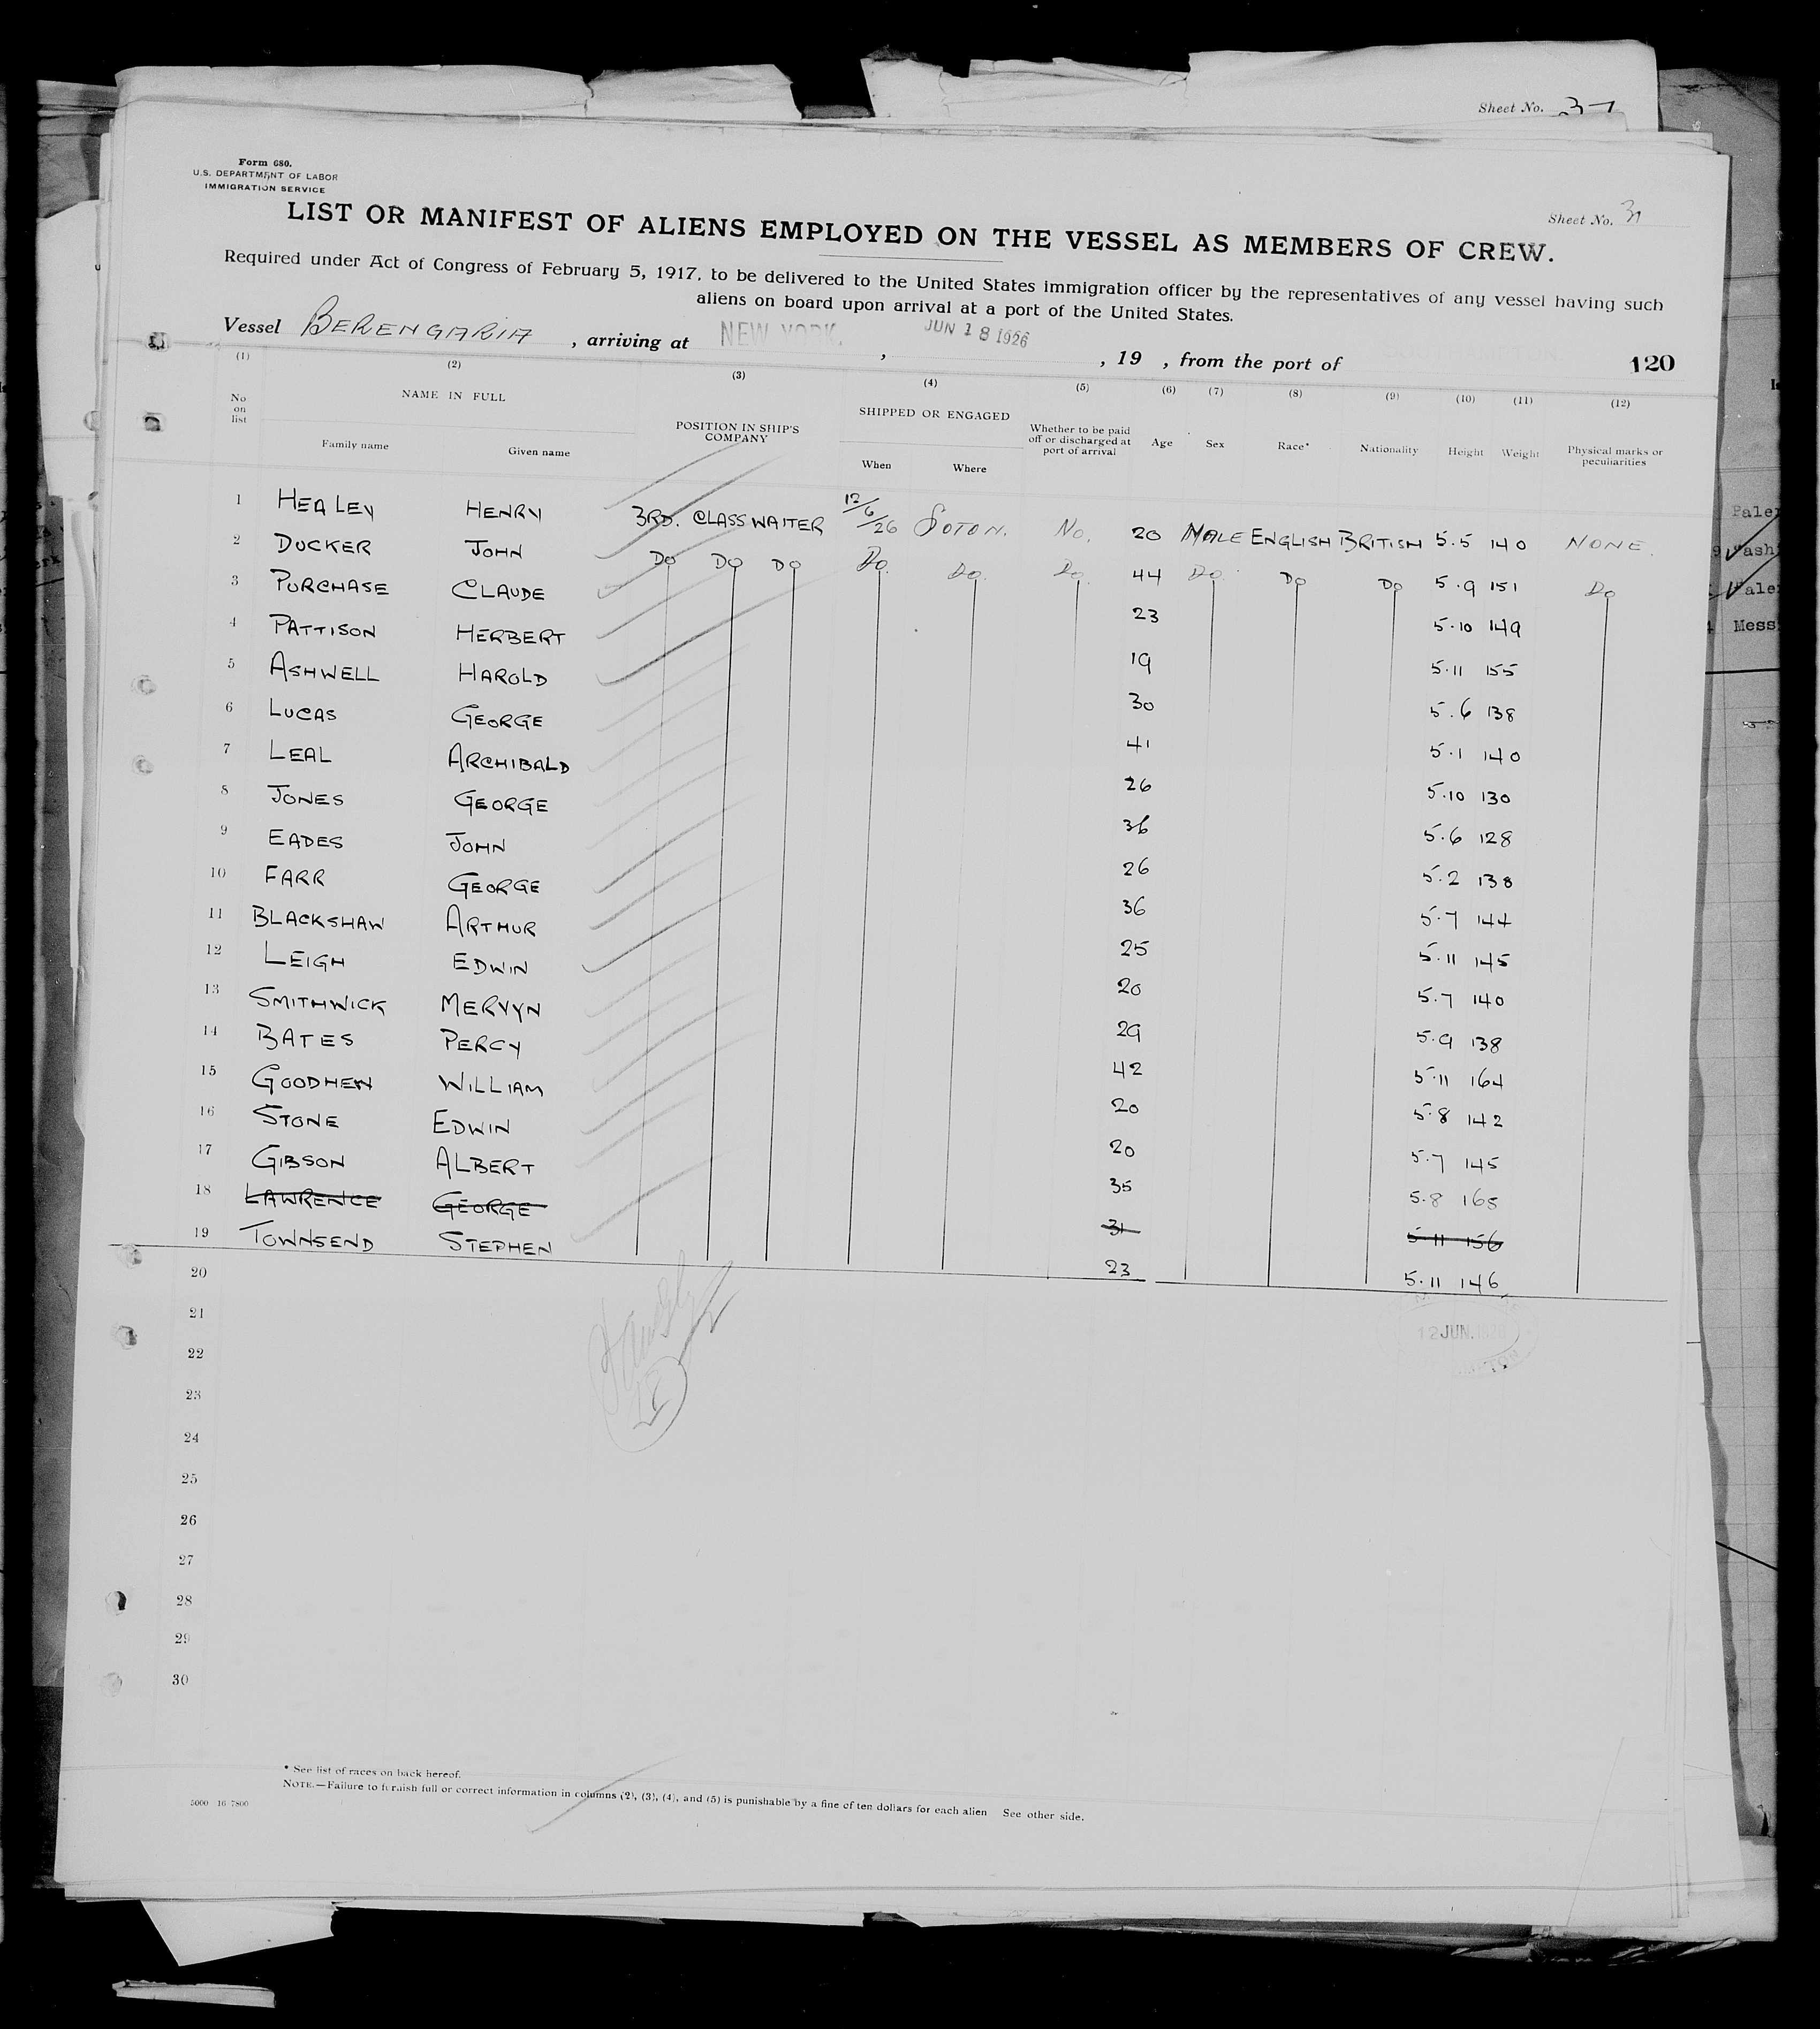 Sheet No. 37
Form 680.
U.S. DEPARTMENT OF LABOR
IMMIGRATION SERVICE
Sheet No. 37
LIST OR MANIFEST OF ALIENS EMPLOYED ON THE VESSEL AS MEMBERS OF CREW.
Required under Act of Congress of February 5, 1917, to be delivered to the United States immigration officer by the representatives of any vessel having such
aliens on board upon arrival at a port of the United States.
Vessel BERENGARIA, arriving at NEW YORK, JUN 18 1926, 19 , from the port of 120
(1) (2) (3) (4) (5) (6) (7) (8) (9) (10) (11) (12)
No on list NAME IN FULL Family name Given name POSITION IN SHIP'S COMPANY SHIPPED OR ENGAGED When Where Whether to be paid off or discharged at port of arrival Age Sex Race* Nationality Height Weight Physical marks or peculiarities
1 HEALEY HENRY 3RD. CLASS WAITER 12/6/26 SOTON. No. 20 MALE ENGLISH BRITISH 5.5 140 NONE.
2 DUCKER JOHN Do Do Do Do Do Do 44 Do Do Do 5.9 151 Do
3 PURCHASE CLAUDE 23 5.10 149
4 PATTISON HERBERT 19 5.11 155
5 ASHWELL HAROLD 30 5.6 138
6 LUCAS GEORGE 41 5.1 140
7 LEAL ARCHIBALD 26 5.10 130
8 JONES GEORGE 36 5.6 128
9 EADES JOHN 26 5.2 138
10 FARR GEORGE 36 5.7 144
11 BLACKSHAW ARTHUR 25 5.11 145
12 LEIGH EDWIN 20 5.7 140
13 SMITHWICK MERVYN 29 5.9 138
14 BATES PERCY 42 5.11 164
15 GOODHEW WILLIAM 20 5.8 142
16 STONE EDWIN 20 5.7 145
17 GIBSON ALBERT 35 5.8 165
18 LAWRENCE GEORGE 31 5.11 156
19 TOWNSEND STEPHEN 23 5.11 146
20
21
12 JUN. 1926
22
23
24
25
26
27
28
29
30
* See list of races on back hereof.
NOTE.—Failure to furnish full or correct information in columns (2), (3), (4), and (5) is punishable by a fine of ten dollars for each alien See other side.
5000 16 7800